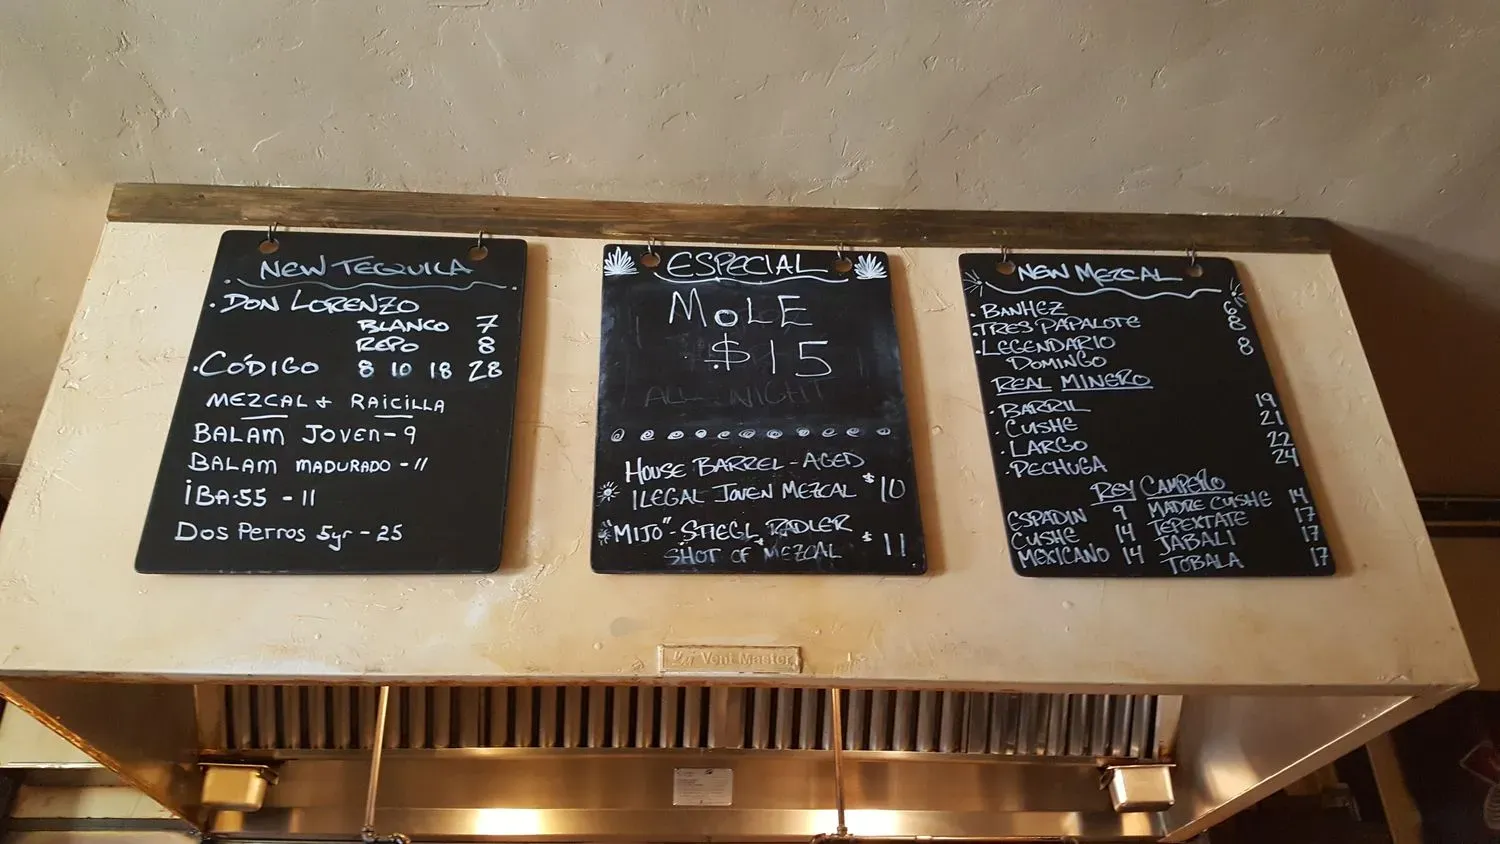 NEW TEQUILA
· DON LORENZO
BLANCO 7
REPO 8
· CÓDIGO 8 10 18 28
MEZCAL & RAICILLA
BALAM JOVEN - 9
BALAM MADURADO - 11
IBA-55 - 11
DOS PERROS 5yr - 25
ESPECIAL
MOLE
$15
ALL NIGHT
HOUSE BARREL-AGED
ILEGAL JOVEN MEZCAL $10
"MIJO" - STIEGL RADLER
SHOT OF MEZCAL $11
NEW MEZCAL
· BANHEZ 6
· TRES PAPALOTE 8
· LEGENDARIO 8
DOMINGO
REAL MINERO
· BARRIL 19
· CUSHE 21
· LARGO 22
· PECHUGA 24
REY CAMPERO
ESPADIN 9 MADRE CUSHE 14
CUSHE 14 TEPEXTATE 17
MEXICANO 14 JABALI 17
TOBALA 17
Vent Master